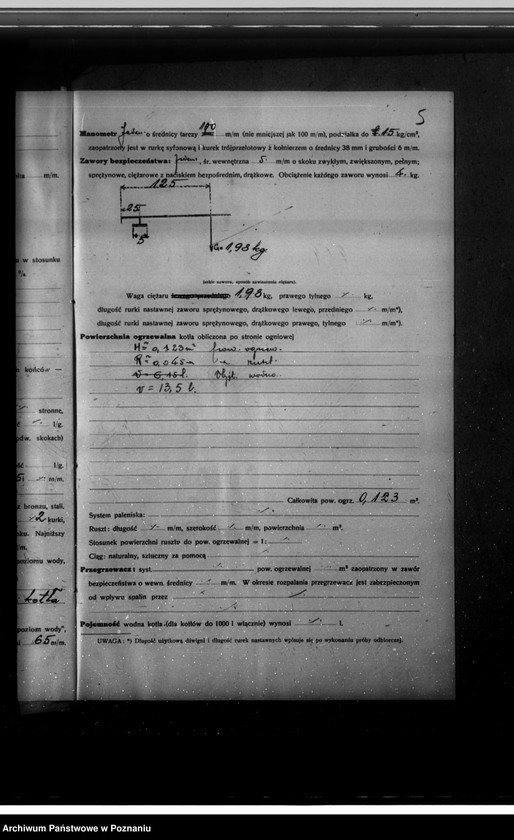 5
Manometr Jeden o średnicy tarczy 100 m/m (nie mniejszej jak 100 m/m), podziałka do 15 kg/cm²,
zaopatrzony jest w rurkę syfonową i kurek trójprzelotowy z kołnierzem o średnicy 38 mm i grubości 6 m/m.
Zawory bezpieczeństwa: Jeden, śr. wewnętrzna 5 m/m o skoku zwykłym, zwiększonym, pełnym;
sprężynowe, ciężarowe z naciskiem bezpośrednim, drążkowe. Obciążenie każdego zaworu wynosi 4 kg.
125
25
5
G=1,98 kg.
(szkic zaworu, sposób zawieszenia ciężaru).
Waga ciężaru 1,98 kg, prawego tylnego kg,
długość rurki nastawnej zaworu sprężynowego, drążkowego lewego, przedniego m/m*),
długość rurki nastawnej zaworu sprężynowego, drążkowego prawego, tylnego m/m*).
Powierzchnia ogrzewalna kotła obliczona po stronie ogniowej
H = 0,123 m² pow. ogrzew.
R = 0,045 m ruszt.
v = 6,15 l. Objęt. wodna.
v = 13,5 l.
Całkowita pow. ogrz. 0,123 m².
System paleniska:
Ruszt: długość m/m, szerokość m/m, powierzchnia m².
Stosunek powierzchni rusztu do pow. ogrzewalnej = 1:
Ciąg: naturalny, sztuczny za pomocą
Przegrzewacz: syst. pow. ogrzewalnej m² zaopatrzony w zawór
bezpieczeństwa o wewn. średnicy m/m. W okresie rozpalania przegrzewacz jest zabezpieczonym
od wpływu spalin przez
Pojemność wodna kotła (dla kotłów do 1000 l włącznie) wynosi l.
UWAGA: *) Długość użytkową dźwigni i długość rurek nastawnych wpisuje się po wykonaniu próby odbiorczej.
m/m.
w stosunku
%
końców —
stronne,
l/g.
pdw. skokach)
l/g.
m/m.
z bronzu, stali.
2 kurki,
Najniższy
poziomu wody,
kotła
poziom wody",
65 m/m.
Archiwum Państwowe w Poznaniu